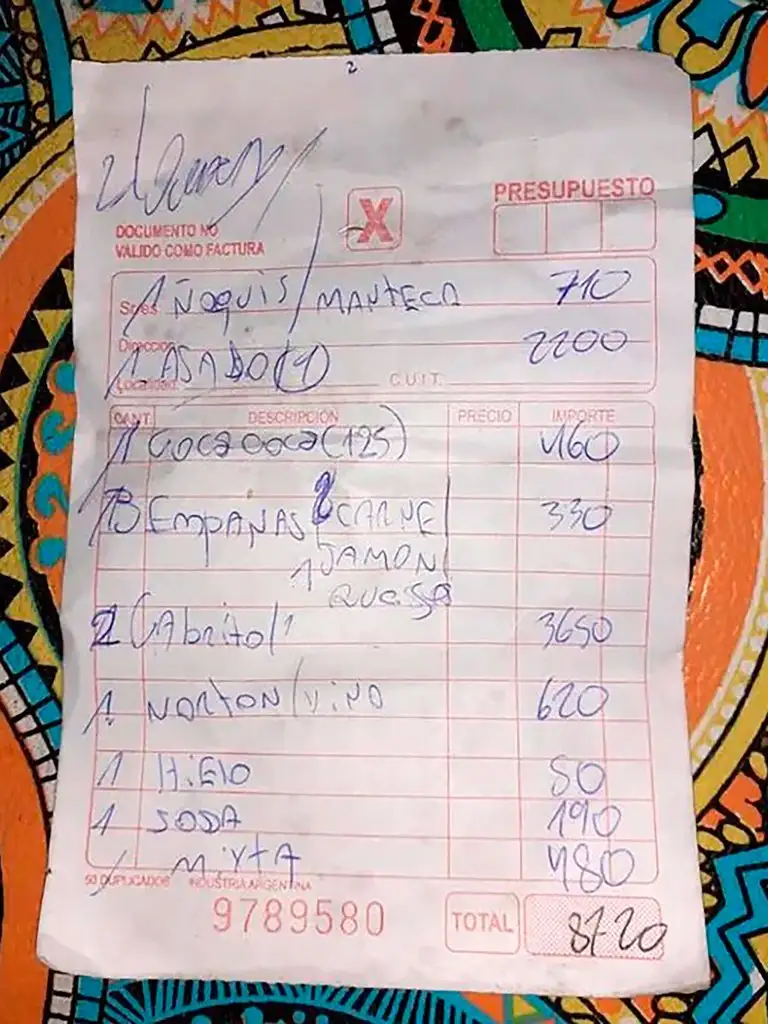 2
PRESUPUESTO
X
DOCUMENTO NO
VALIDO COMO FACTURA
Sres
1 ÑOQUIS / MANTECA 710
Dirección
1 ASADO (1) 2200
Localidad C.U.I.T.
CANT. DESCRIPCIÓN PRECIO IMPORTE
1 COCA COCA (125) 460
3 EMPAÑAS 2 CARNE 330
1 JAMON
QUESSO
2 CABRITO / 1 3650
1 NORTON / VINO 620
1 HIELO 50
1 SODA 190
MIXTA 480
50 DUPLICADOS INDUSTRIA ARGENTINA
9789580 TOTAL 8720